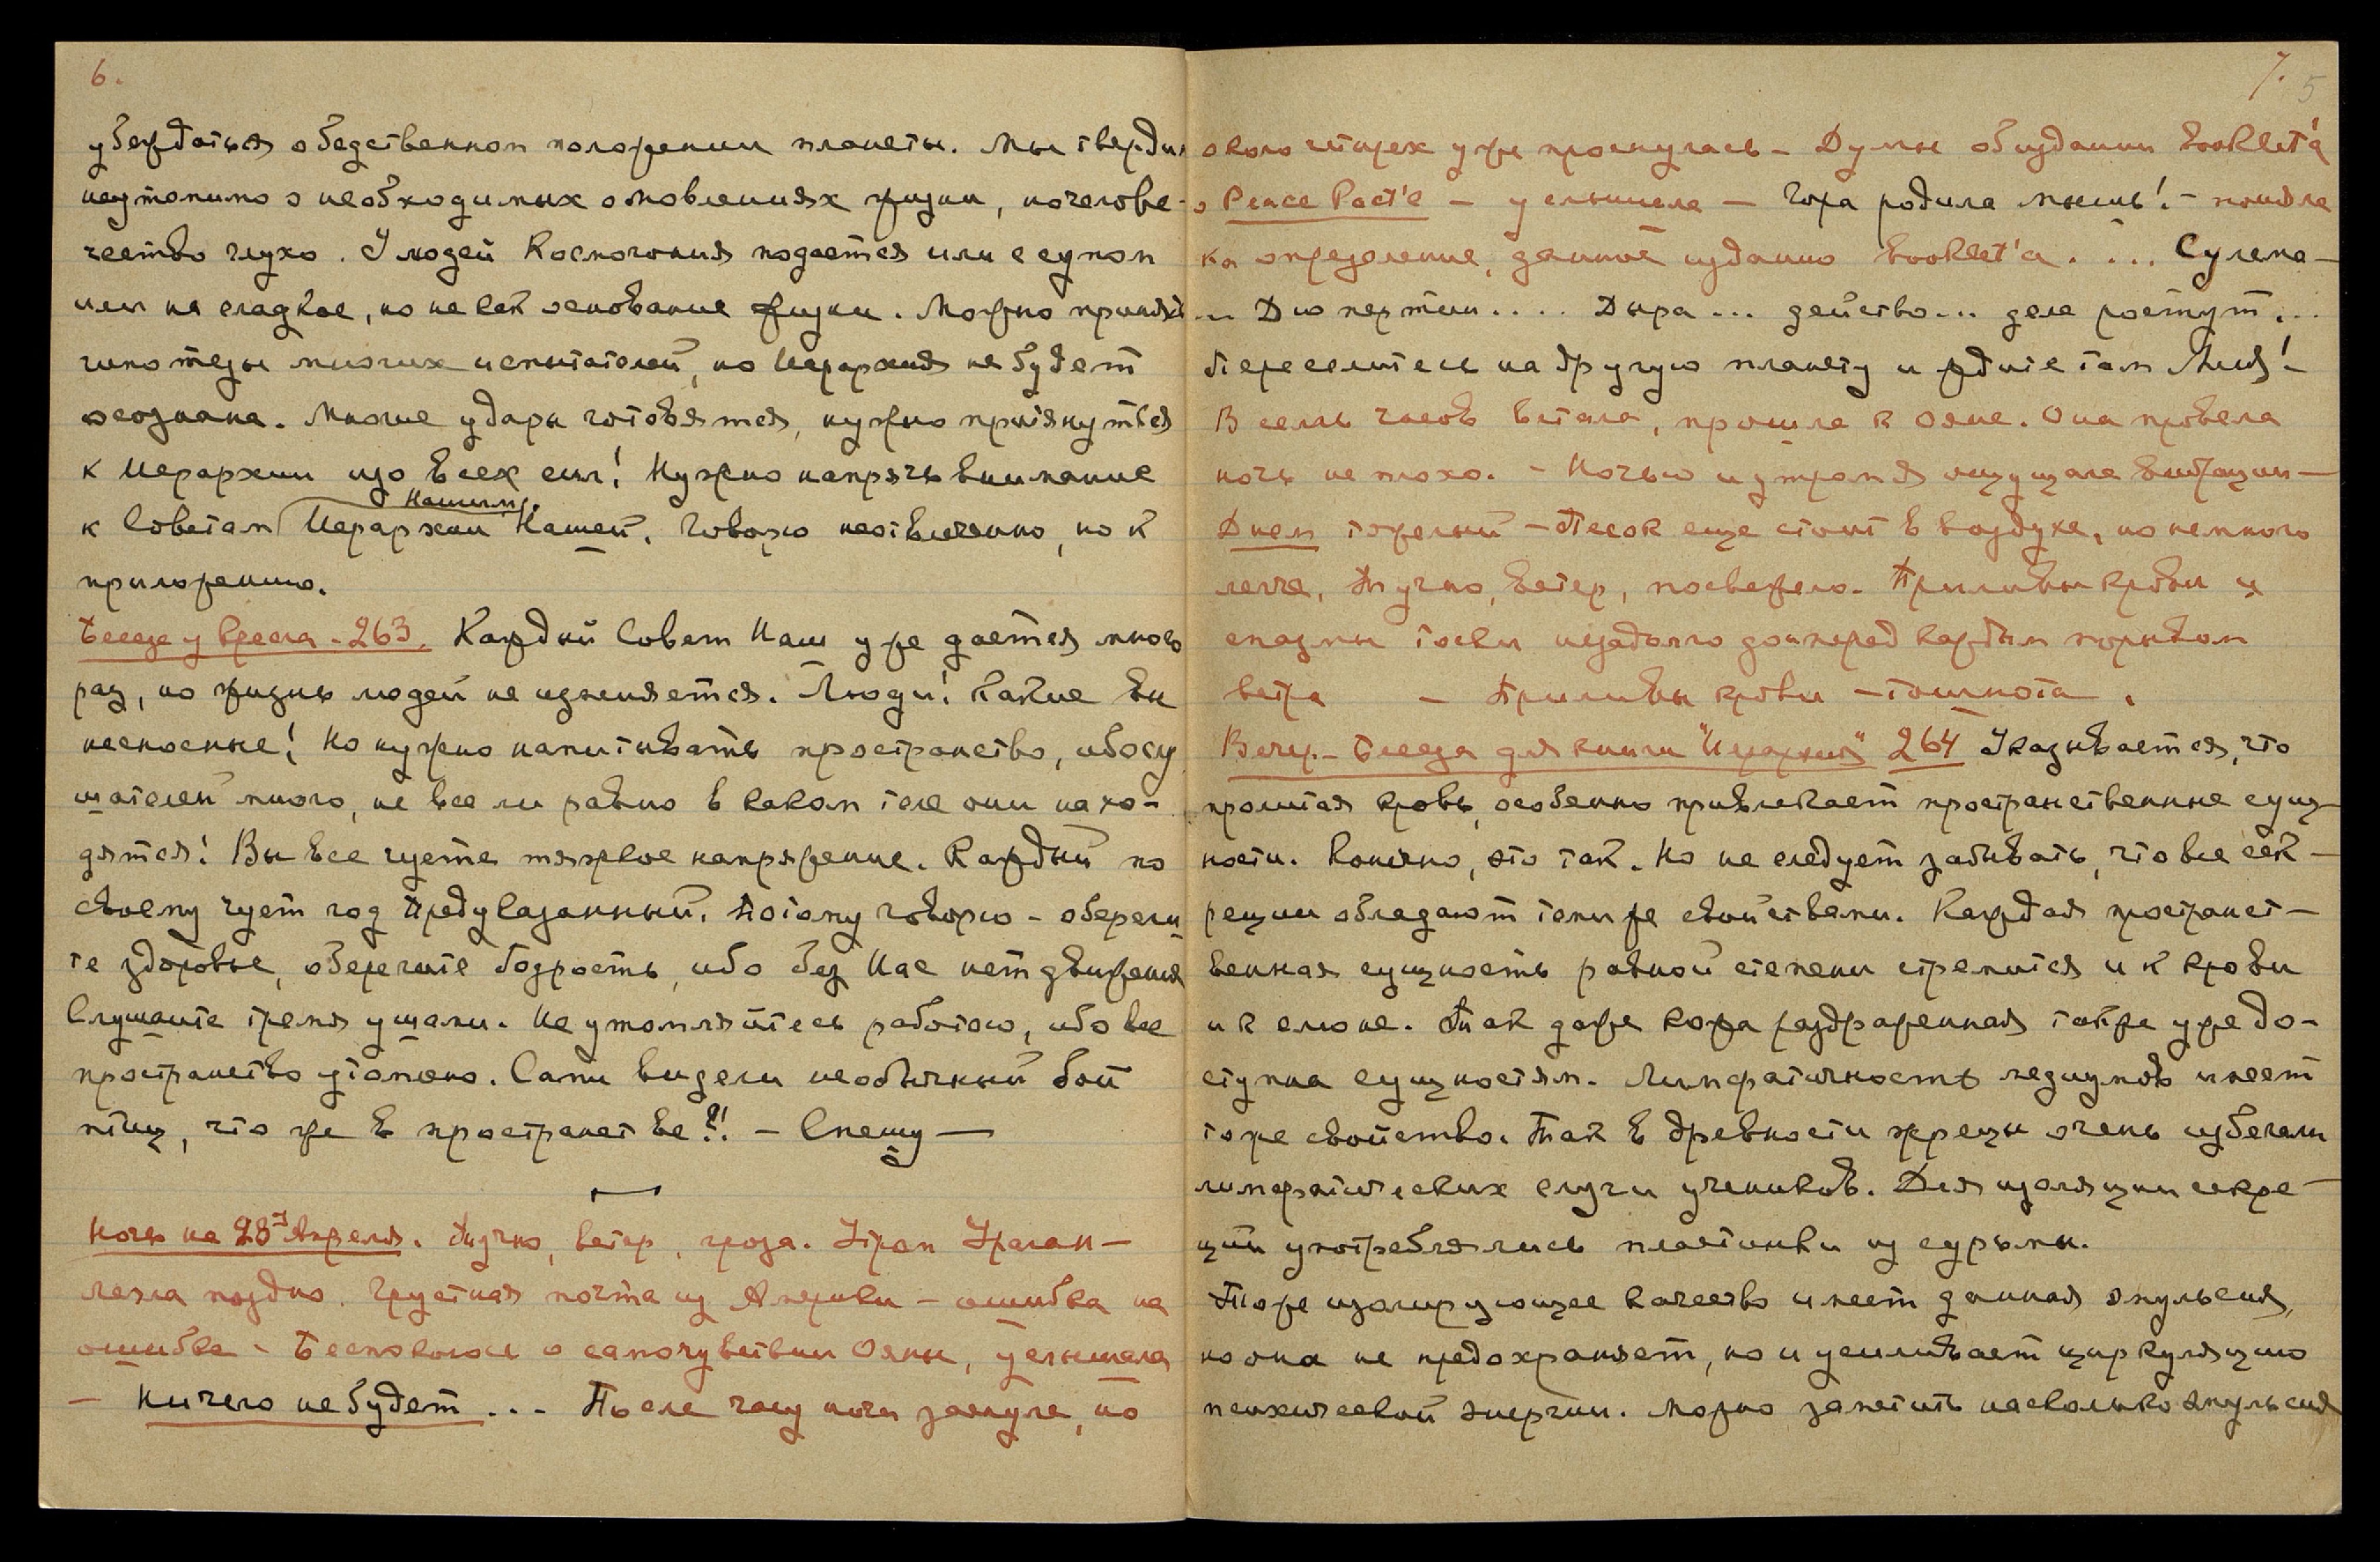 6.
убеждаться о бедственном положении планеты. Мы твердим
неутомимо о необходимых обновлениях жизни, но челове-
чество глухо. У людей Космогония подается или с супом
или на сладкое, но не как основание жизни. Можно принять
гипотезы многих испытателей, но Иерархия не будет
осознана. Многие удары готовятся, нужно притянуться
к Иерархии изо всех сил! Нужно напрячь внимание
Нашим,
к Советам Иерархии Нашей. Говорю неотвлеченно, но к
приложению.
Беседа у Кресла - 263. Каждый Совет Наш уже дается много
раз, но жизнь людей не изменяется. Люди! Какие вы
несносные! Но нужно напитывать пространство, ибо слу
шателей много, не все ли равно в каком теле они нахо-
дятся! Вы все чуете тяжкое напряжение. Каждый по
своему чует год Предуказанный. Потому говорю - обереги
те здоровье, оберегите бодрость, ибо без Нас нет движения
Слушайте тремя ушами. Не утомляйтесь работою, ибо все
пространство утомлено. Сами видели необычный бой
птиц, что же в пространстве?! - Спешу —
Ночь на 23-ʲ Апреля. Тучно, ветер, гроза. Утром Ураган —
легла поздно. Грустная почта из Америки - ошибка на
ошибке - Беспокоюсь о самочувствии Ояны, услышала
- Ничего не будет... После часу ночи заснула, но
7. 5
около четырех уже проснулась - Думы об издании booklet'a
о Peace Pact'e - услышала - Гора родила мышь! - поняла
как определение, данное изданию booklet'a. ... Сулема -
... Дио пертин.... Дыра... действо... дела растут...
Переселитесь на другую планету и ждите там Меня! -
В семь часов встала, прошла к Ояне. Она провела
ночь не плохо. - Ночью и утром я ощущала вибрации —
Днем тяжелый - Песок еще стоит в воздухе, но немного
легче, Тучно, ветер, посвежело. Приливы крови и
спазмы тоски незадолго до и перед каждым порывом
ветра - Приливы крови - тошнота.
Вечер. - Беседа для книги "Иерархия" 264 Указывается, что
пролитая кровь особенно привлекает пространственные сущ-
ности. Конечно, это так. Но не следует забывать, что все сек-
реции обладают теми же свойствами. Каждая пространст-
венная сущность равной степени стремится и к крови
и к слюне. Так даже кожа раздраженная также уже до-
ступна сущностям. Лимфатичность медиумов имеет
то же свойство. Так в древности жрецы очень избегали
лимфатических слуг и учеников. Для изоляции секре-
ций употреблялись пластинки из сурьмы.
То же изолирующее качество имеет данная эмульсия,
но она не предохраняет, но и усиливает циркуляцию
психической энергии. Можно заметить насколько эмульсия